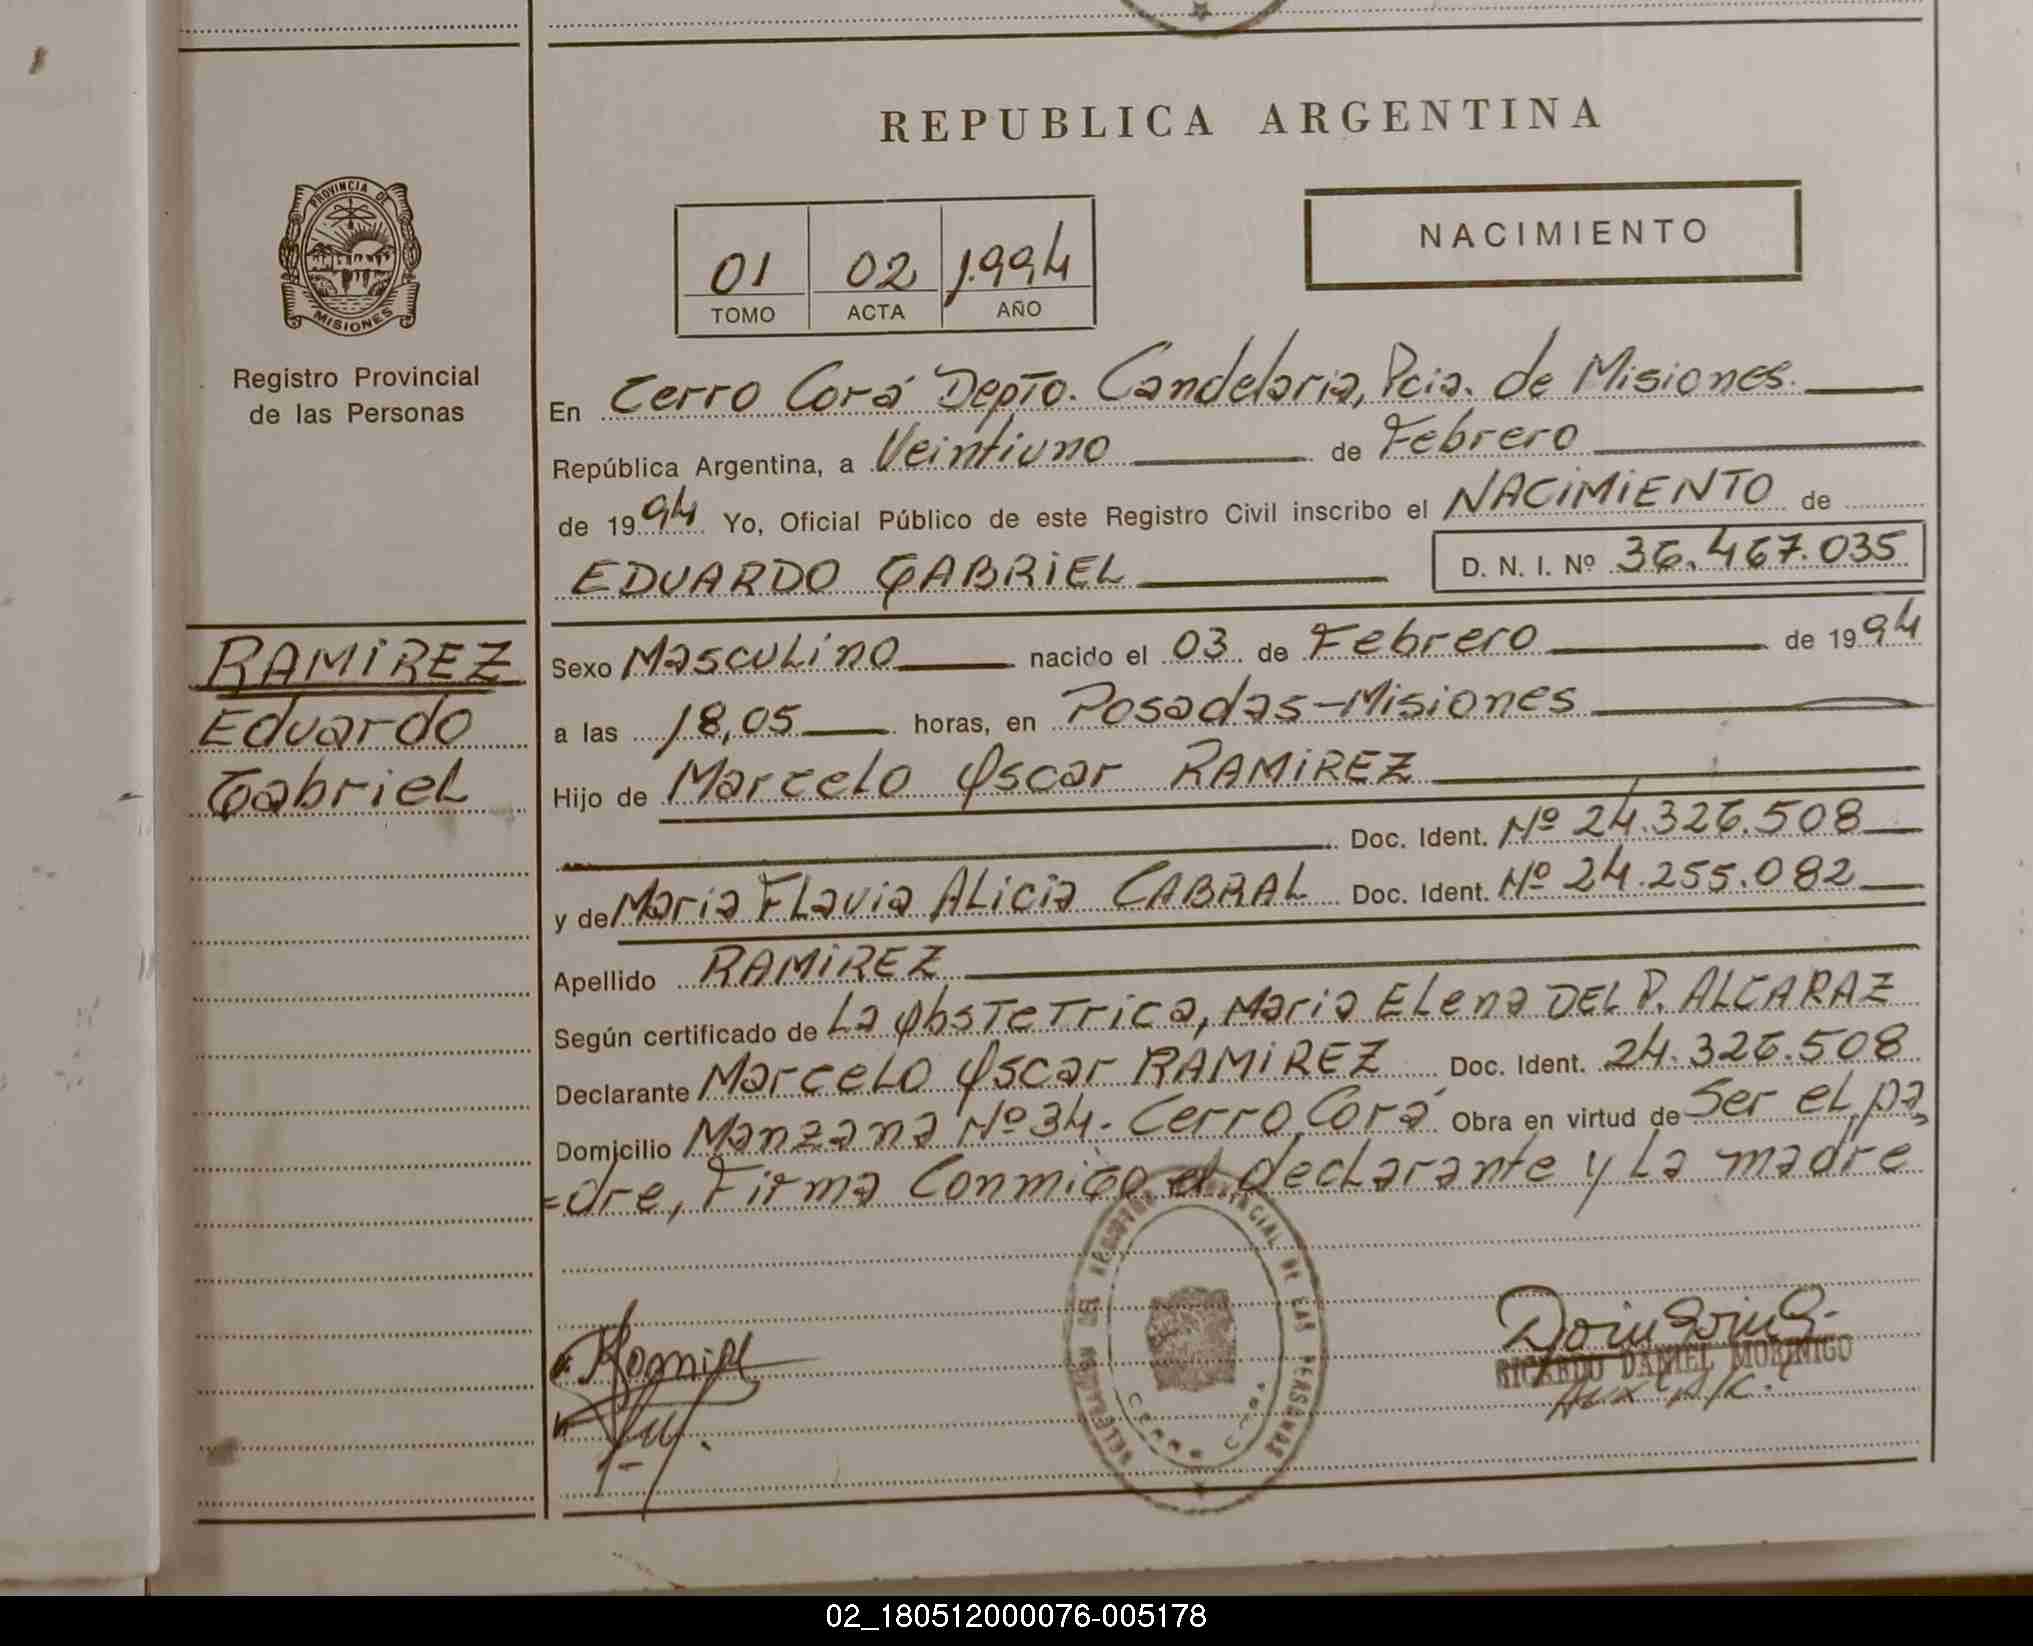 REPUBLICA ARGENTINA
PROVINCIA DE
MISIONES
Registro Provincial
de las Personas
01 02 1.994
TOMO ACTA AÑO
NACIMIENTO
En Cerro Corá Depto. Candelaria, Pcia. de Misiones.
República Argentina, a Veintiuno de Febrero
de 1994 Yo, Oficial Público de este Registro Civil inscribo el NACIMIENTO de
EDUARDO GABRIEL D. N. I. Nº 36.467.035
RAMIREZ
Eduardo
Gabriel
Sexo Masculino nacido el 03 de Febrero de 1994
a las 18,05 horas, en Posadas-Misiones
Hijo de Marcelo Oscar RAMIREZ
Doc. Ident. Nº 24.326.508
y de Maria Flavia Alicia CABRAL Doc. Ident. Nº 24.255.082
Apellido RAMIREZ
Según certificado de La Obstetrica, Maria Elena DEL P. ALCARAZ
Declarante Marcelo Oscar RAMIREZ Doc. Ident. 24.326.508
Domicilio Manzana Nº 34. Cerro Corá Obra en virtud de Ser el pa
=dre, Firma Conmigo el declarante y La madre
PROVINCIAL DE LAS PERSONAS
CERRO CORA
RICARDO DANIEL MORINIGO
02_180512000076-005178